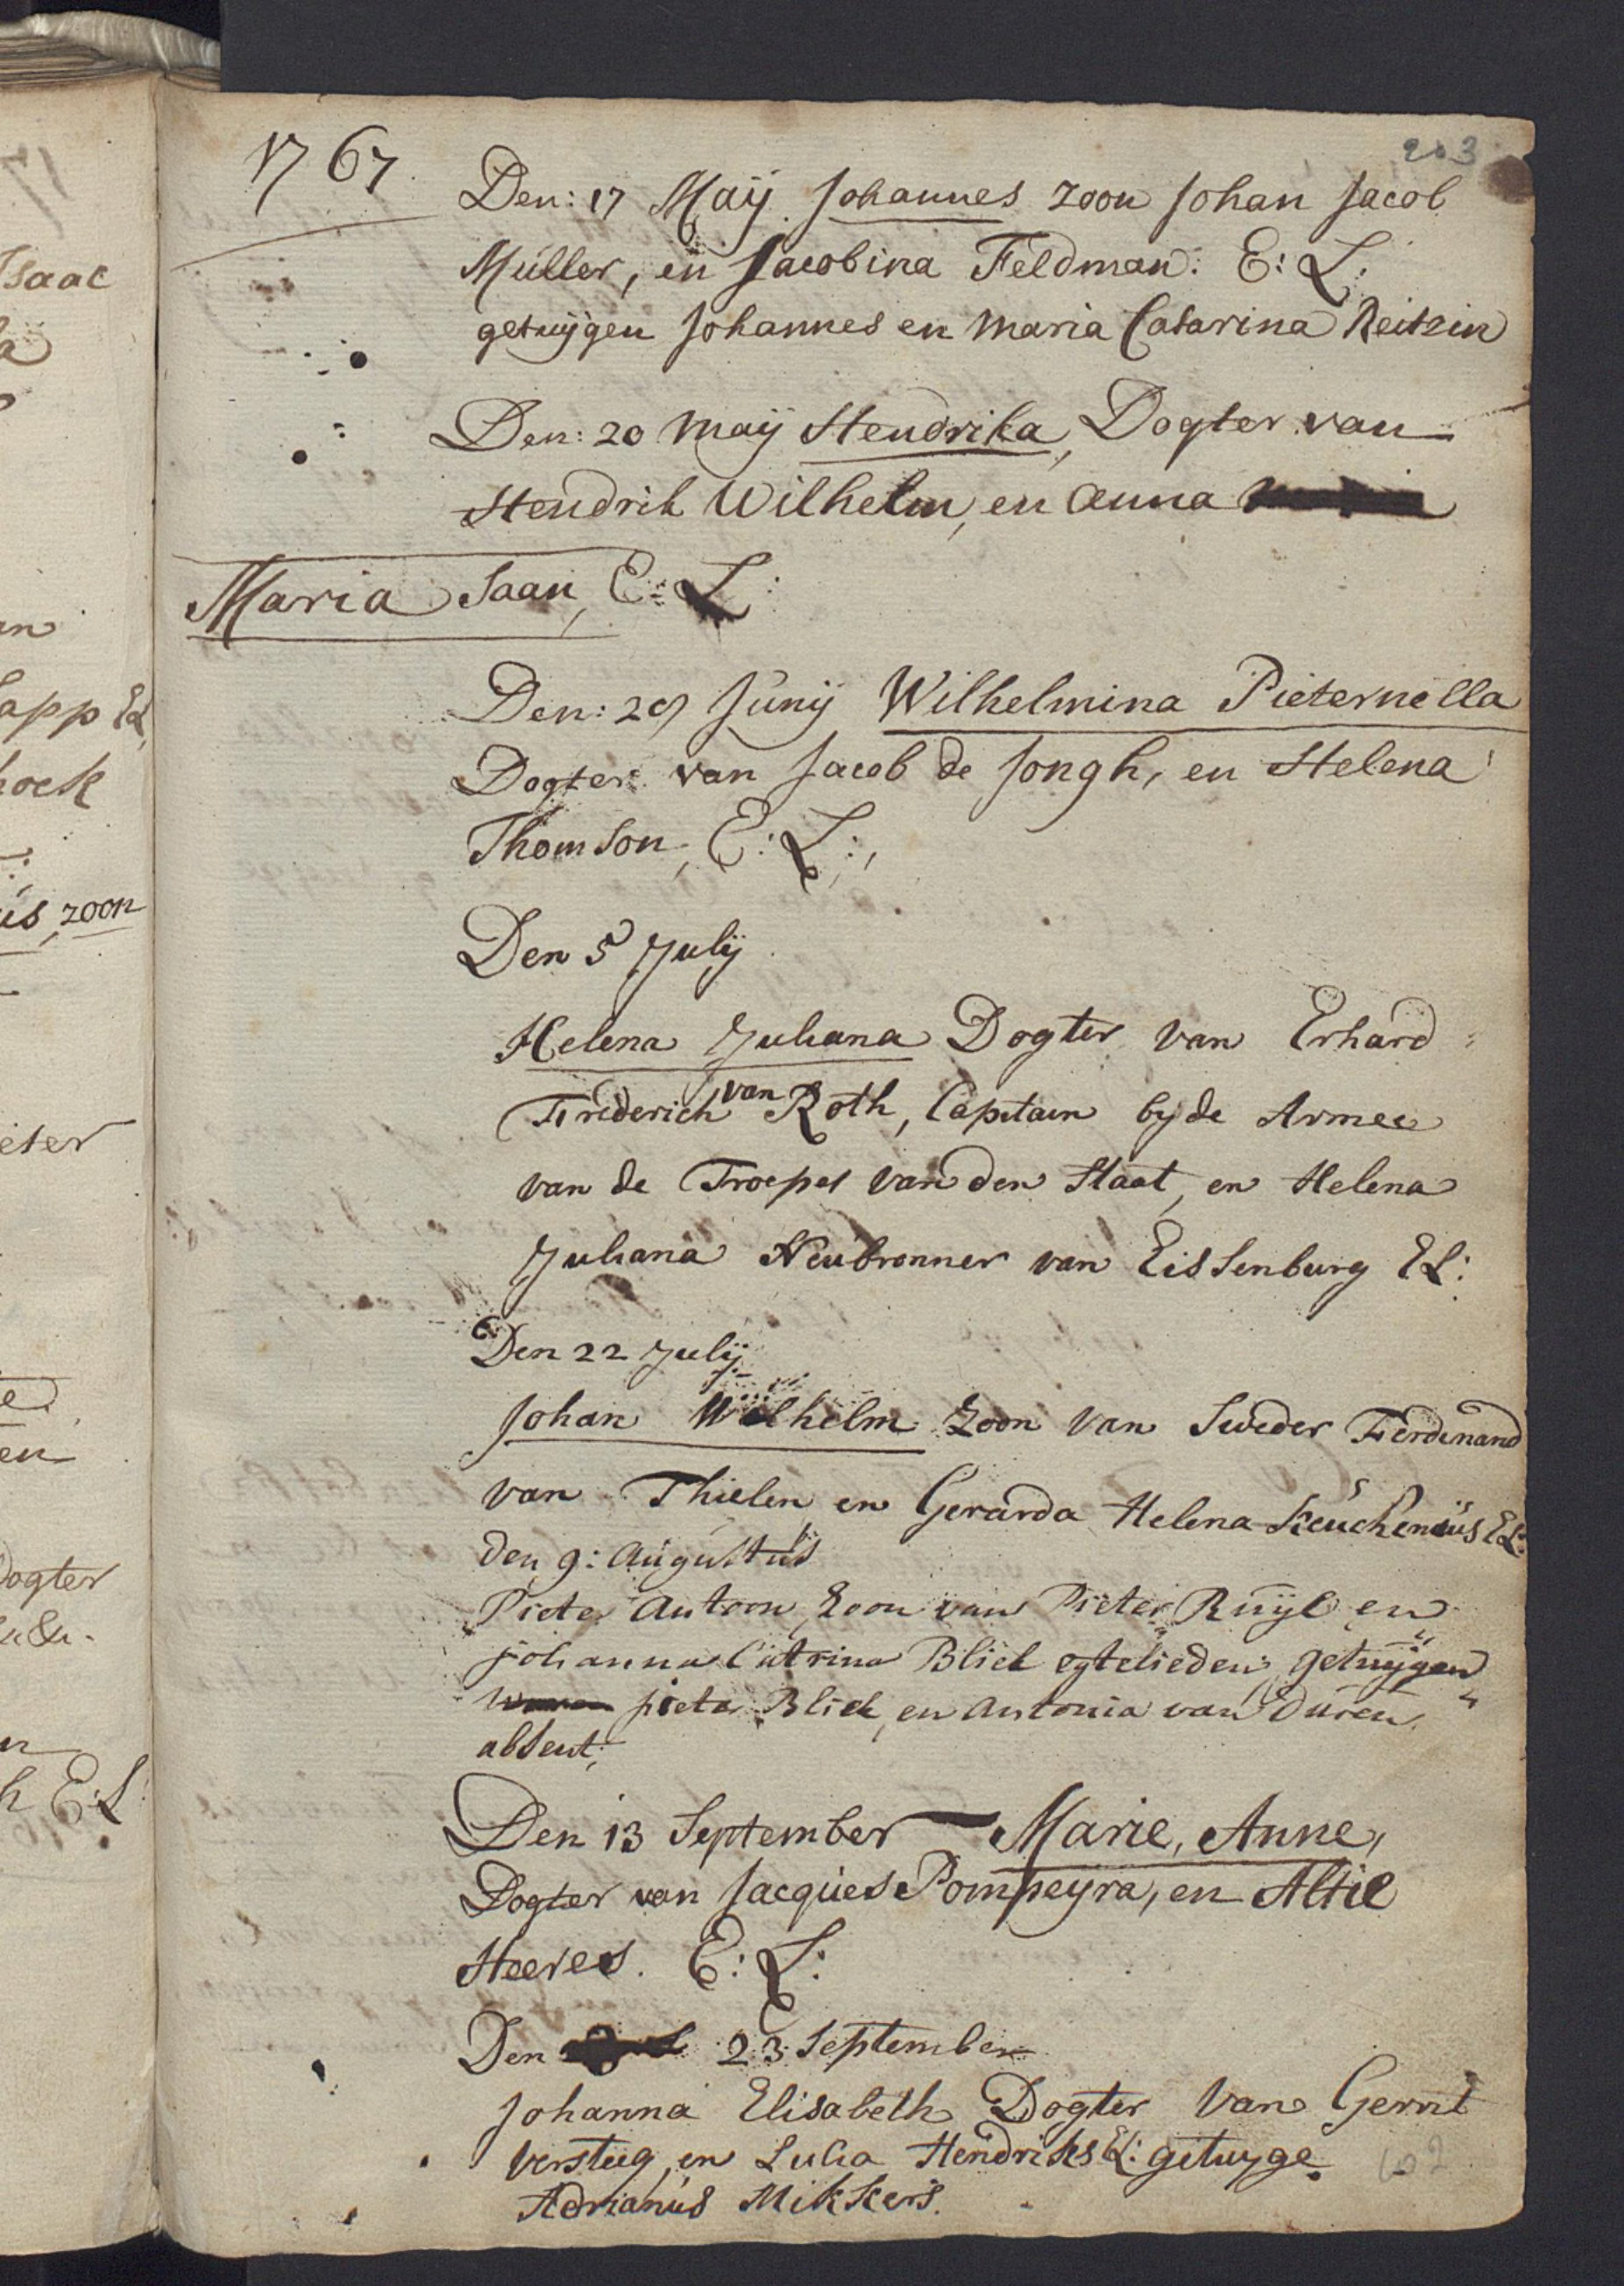 1767.
203
Den: 17 Maÿ. Johannes zoon Johan Jacob
Müller, en Jacobina Feldman: E: L:
getuÿgen Johannes en Maria Catarina Reitzin
Den: 20 Maÿ Hendrika, Dogter van
Hendrik Wilhelm, en Anna
Maria Saan, E: L:
Den: 29 Junÿ Wilhelmina Pieternella
Dogter van Jacob de Jongh, en Helena
Thomson, E: L:,
Den 5 Julÿ
Helena Juliana Dogter van Erhard
Friderich van Roth, Capitain by de Armee
van de Troepes van den Staat, en Helena
Juliana Neubronner van Eissenburg EL:
Den 22 Julÿ
Johan Wilhelm Zoon van Sweder Ferdinand
van Thielen en Gerarda Helena Keuchenius EL:
den 9: Augustus
Pieter Antoon, Zoon van Pieter Ruÿl en
Johanna Catrina Bliek egtelieden; getuÿgen
pieter Bliek, en Antonia van Duren
absent;
Den 13 September — Marie, Anne,
Dogter van Jacques Pompeyra, en Altie
Heeres. E: L:
Den 23 September
Johanna Elisabeth Dogter van Gerrit
Versteeg, en Lulia Hendriks EL: getuyge
Adrianus Mikkers.
Isaac
app EL
hoek
us, zoon
eter
en
Dogter
h E:L